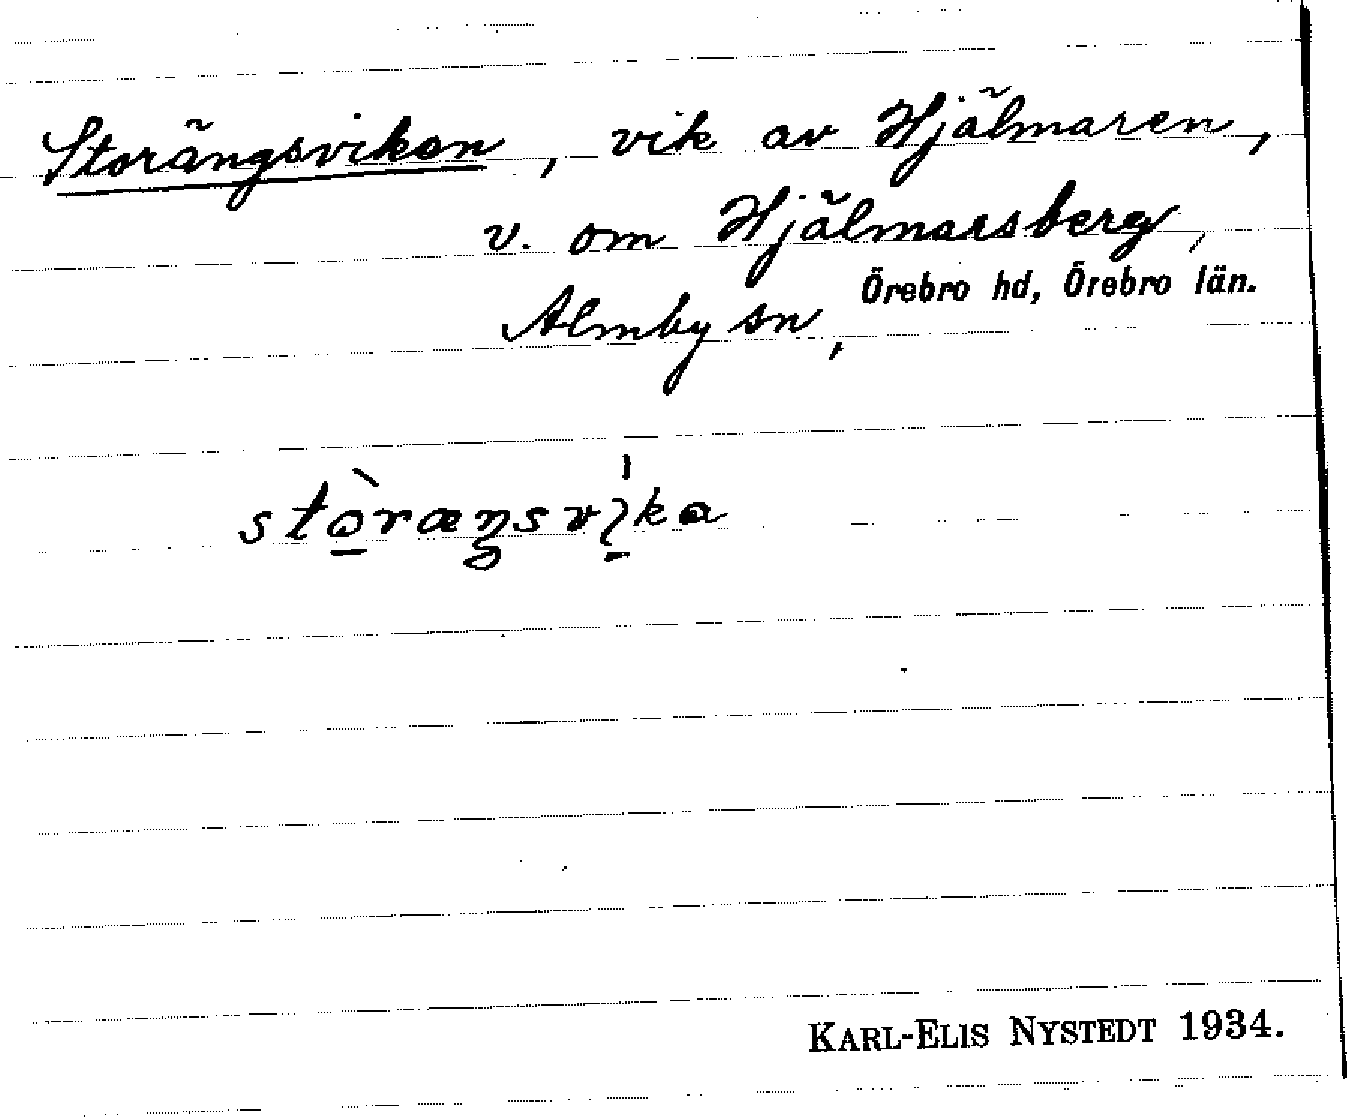 Storängsviken, vik av Hjälmaren,
v. om Hjälmarsberg,
Almby sn, Örebro hd, Örebro län.
KARL-ELIS NYSTEDT 1934.